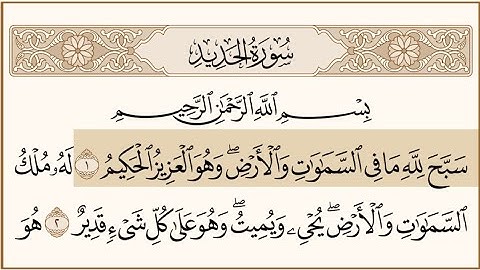 سُورَةُ الْحَدِيدِ
بِسْمِ ٱللَّهِ ٱلرَّحْمَٰنِ ٱلرَّحِيمِ
سَبَّحَ لِلَّهِ مَا فِى ٱلسَّمَٰوَٰتِ وَٱلْأَرْضِ ۖ وَهُوَ ٱلْعَزِيزُ ٱلْحَكِيمُ ١ لَهُۥ مُلْكُ
ٱلسَّمَٰوَٰتِ وَٱلْأَرْضِ ۖ يُحْىِۦ وَيُمِيتُ ۖ وَهُوَ عَلَىٰ كُلِّ شَىْءٍ قَدِيرٌ ٢ هُوَ